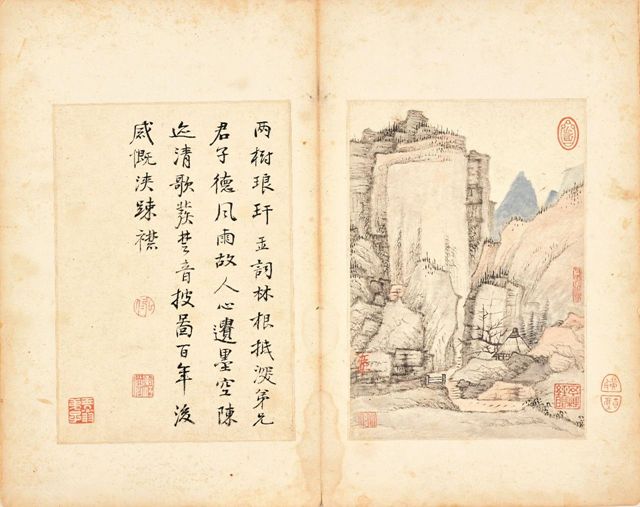 两樹琅玕並詞林根柢深弟兄
君子德風雨故人心遺墨空陳
迹清歌發楚音披圖百年後
感慨浹疎襟